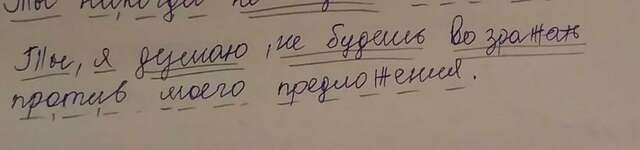 Ты никогда не
Ты, я думаю, не будешь возражать
против моего предложения.